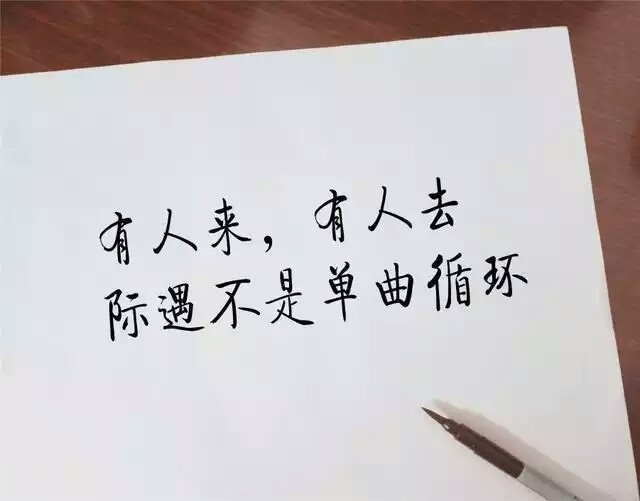 有人来，有人去
际遇不是单曲循环